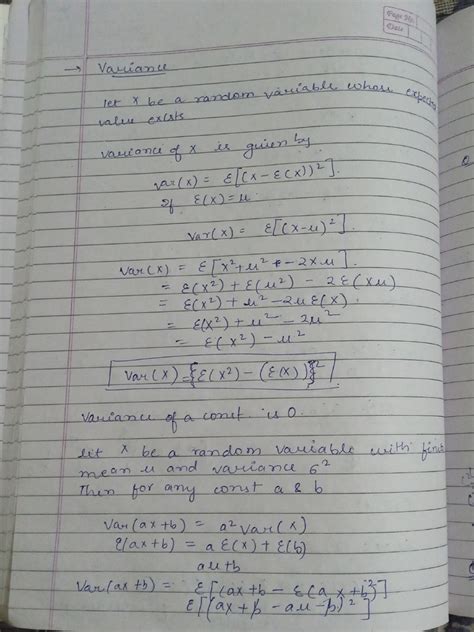 Page No.
Date
→ Variance
let X be a random variable whose expected
value exists
variance of X is given by
var(x) = E[(x - E(x))²].
if E(x) = μ
Var(x) = E[(x-μ)²].
Var(x) = E[x² + μ² - 2xμ]
= E(x²) + E(μ²) - 2E(xμ)
= E(x²) + μ² - 2μE(x).
= E(x²) + μ² - 2μ²
= E(x²) - μ²
Var(x) = {E(x²) - (E(x))}²
Variance of a const. is 0.
let X be a random variable with finite
mean μ and variance σ²
Then for any const a & b
Var(ax+b) = a² Var(x)
E(ax+b) = a E(x) + E(b)
aμ+b
Var(ax+b) = E[(ax+b - E(ax+b)²]
E[(ax+b - aμ - b)²]